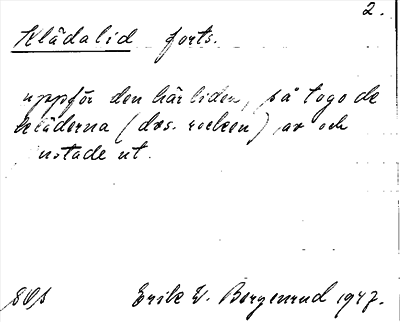 2.
Klädalid forts.
uppför den här liden, så togo de
kläderna (dvs. rocken) av och
ut.
Erik W. Bergenrud 1947.